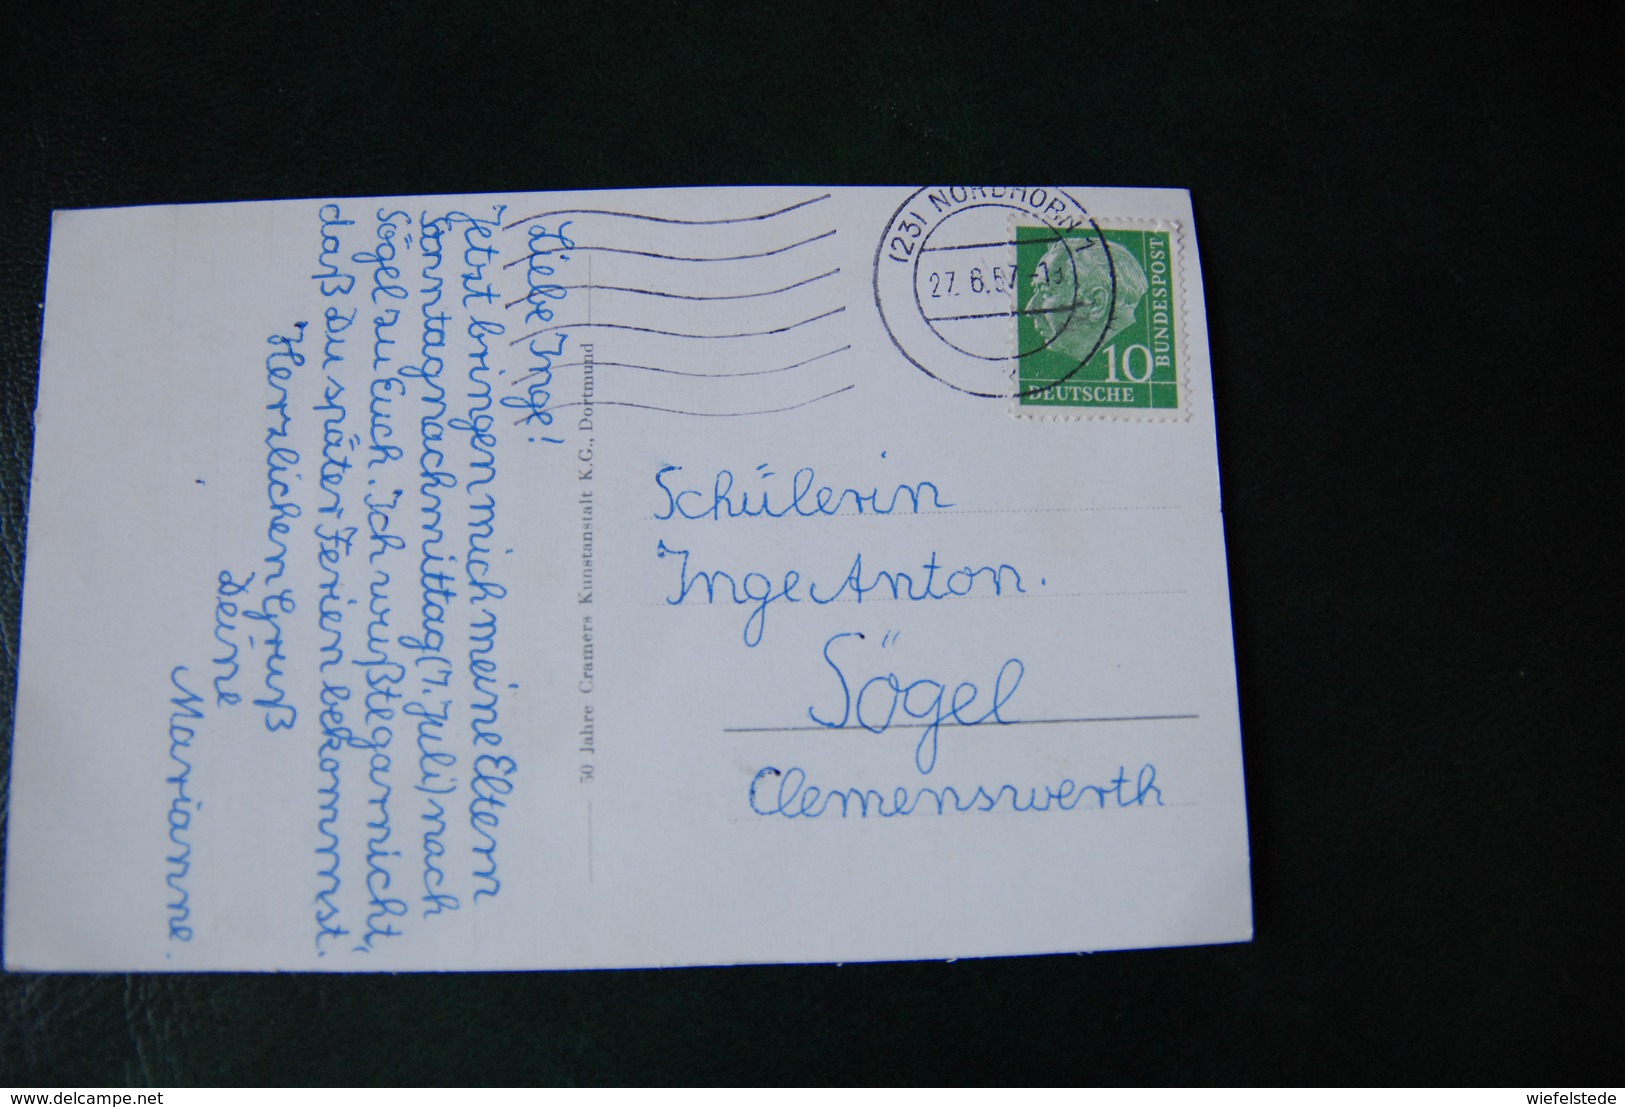 Liebe Inge!
Jetzt bringen mich meine Eltern
Sonntagnachmittag (7. Juli) nach
Sögel zu Euch. Ich wußte garnicht,
daß Du später Ferien bekommst.
Herzlichen Gruß
Deine
Marianne.
50 Jahre Cramers Kunstanstalt K.G., Dortmund
(23) NORDHORN 1
27. 6.57
10
DEUTSCHE
BUNDESPOST
Schülerin
Inge Anton.
Sögel
Clemenswerth
www.delcampe.net
wiefelstede